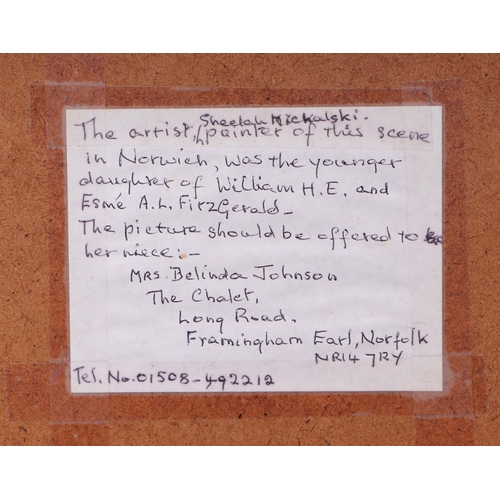 Sheelah Mickalski.
The artist, painter of this scene
in Norwich, was the younger
daughter of William H.E. and
Esmé A.L. FitzGerald-
The picture should be offered to
her niece:-
Mrs. Belinda Johnson
The Chalet,
Long Road.
Framingham Earl, Norfolk
NR14 7RY
Tel. No. 01508-492212